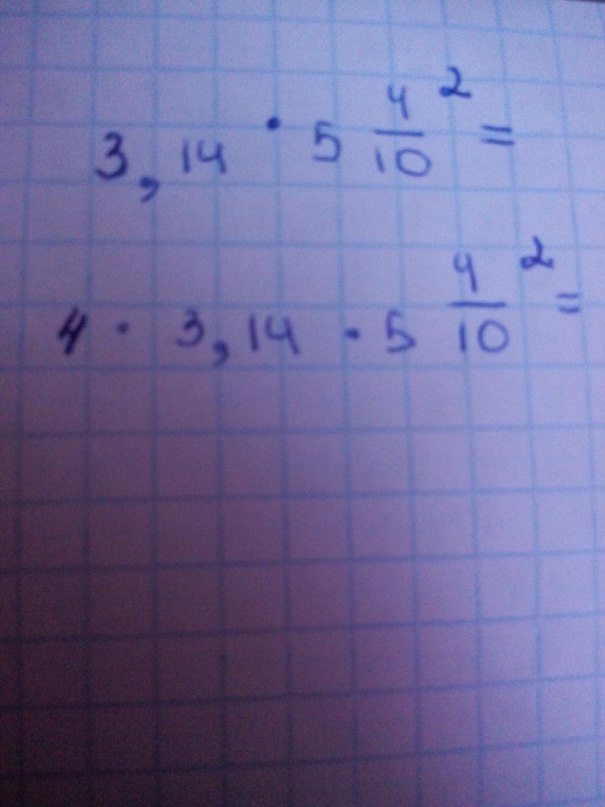 3,14 · 5 4/10 ² =
4 · 3,14 · 5 4/10 ² =